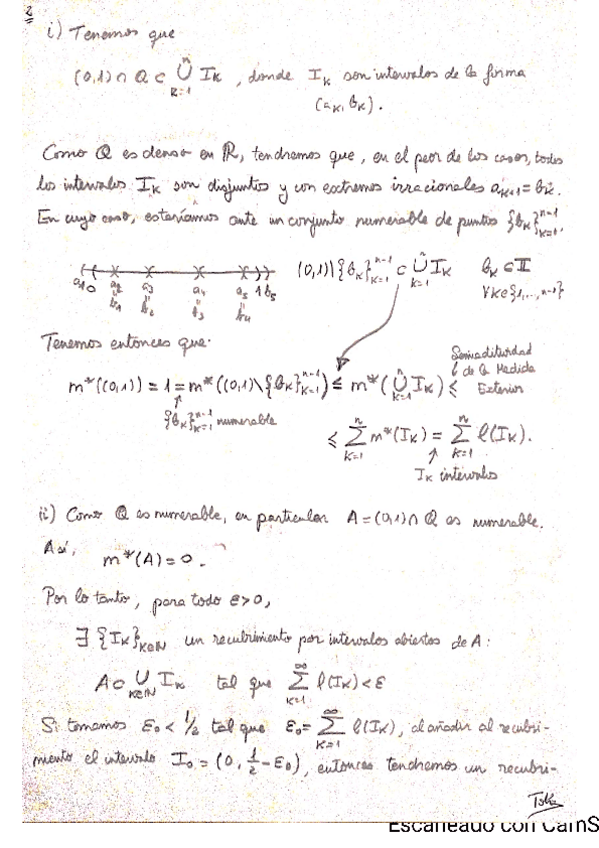 2
i) Tenemos que
(0,1) ∩ Q ⊂ ⋃_{k=1}^{n} I_k , donde I_k son intervalos de la forma
(a_k, b_k).
Como Q es denso en ℝ, tendremos que, en el peor de los casos, todos
los intervalos I_k son disjuntos y con extremos irracionales a_{k+1} = b_k.
En cuyo caso, estaríamos ante un conjunto numerable de puntos {b_k}_{k=1}^{n-1}.
(0,1)\{b_k}_{k=1}^{n-1} ⊂ ⋃_{k=1}^{n} I_k b_k ∈ 𝕀
∀k∈{1,...,n-1}
a_1 0 a_2 a_3 a_4 a_5 1 b_5
b_1 b_2 b_3 b_4
Tenemos entonces que:
Semiaditividad
de la Medida
Exterior
m*((0,1)) = 1 = m*((0,1)\{b_k}_{k=1}^{n-1}) ≤ m*(⋃_{k=1}^{n} I_k) ≤
{b_k}_{k=1}^{n-1} numerable
≤ ∑_{k=1}^{n} m*(I_k) = ∑_{k=1}^{n} ℓ(I_k).
I_k intervalos
ii) Como Q es numerable, en particular A = (0,1) ∩ Q es numerable.
Así,
m*(A) = 0.
Por lo tanto, para todo ε>0,
∃ {I_k}_{k∈ℕ} un recubrimiento por intervalos abiertos de A:
A ⊂ ⋃_{k∈ℕ} I_k tal que ∑_{k=1}^{∞} ℓ(I_k) < ε
Si tomamos ε_0 < 1/2 tal que ε_0 = ∑_{k=1}^{∞} ℓ(I_k), al añadir al recubri-
miento el intervalo I_0 = (0, 1/2 - ε_0), entonces tendremos un recubri-
Escaneado con CamS